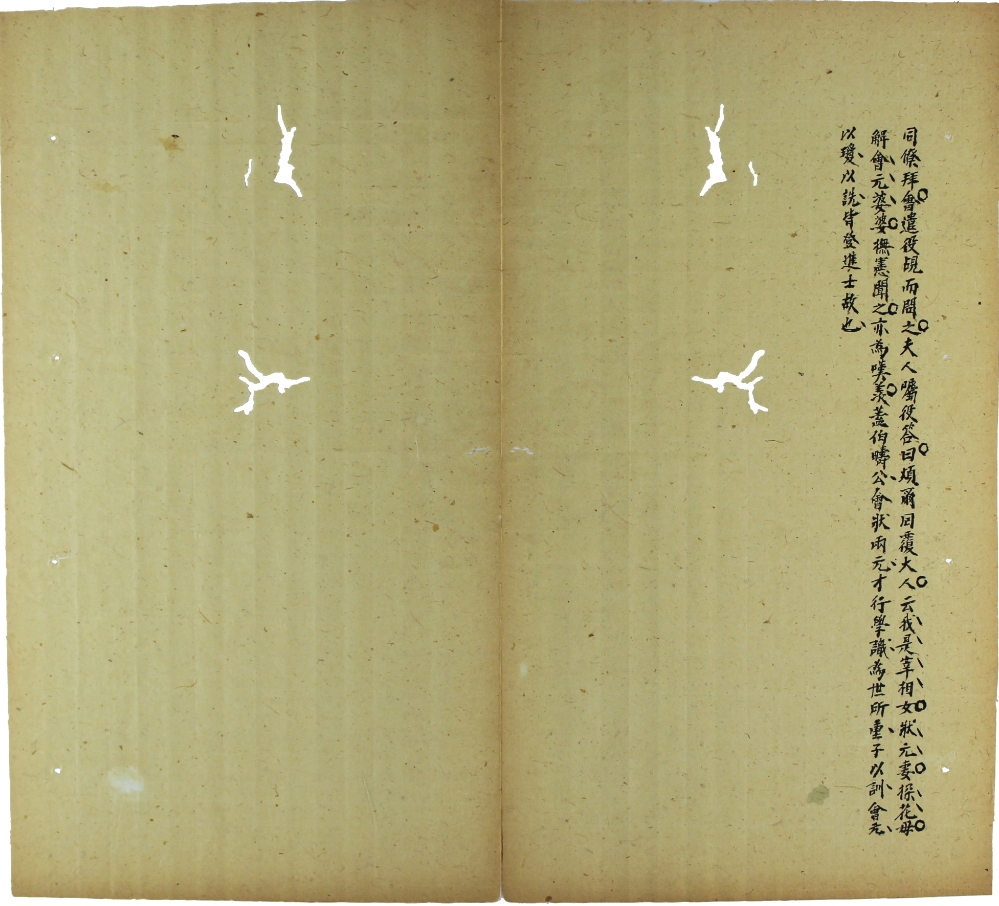 同僚拜會遣役覘而問之夫人囑役答曰煩爾回覆大人云我是宰相女狀元妻探花母
解會元婆婆撫憲聞之亦為嘆羨蓋伯疇公會狀兩元才行學識為世所重子以訓會元
以瓊以詵皆登進士故也